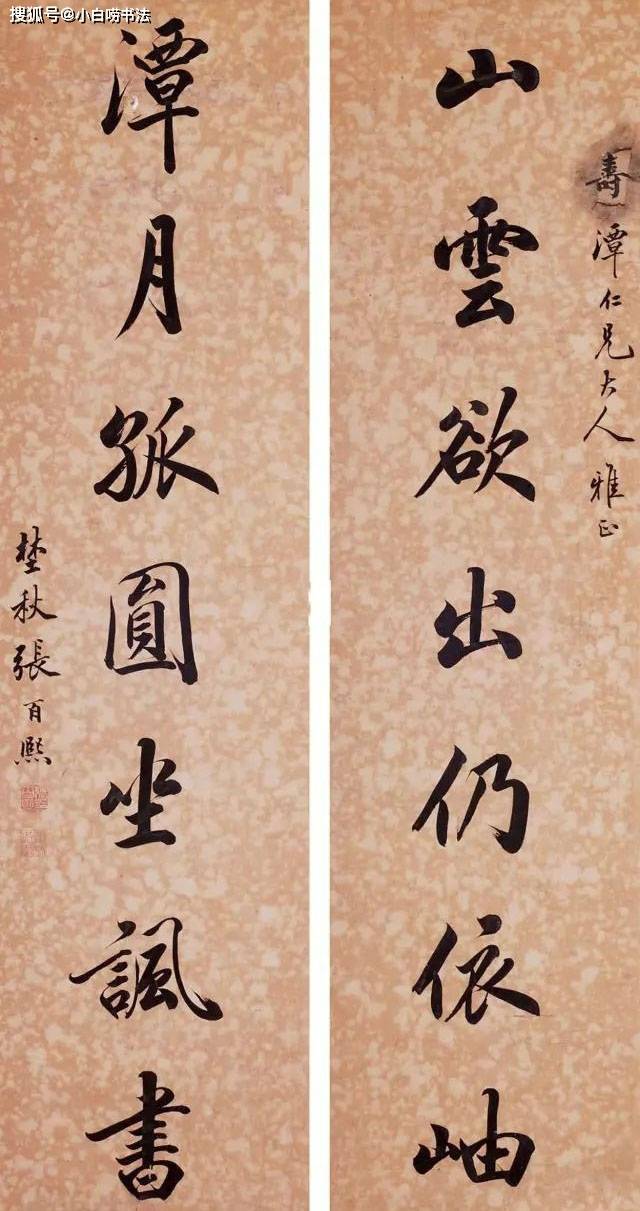 搜狐号@小白唠书法
壽潭仁兄大人雅正
山雲欲出仍依岫
潭月孤圓坐諷書
埜秋張百熙